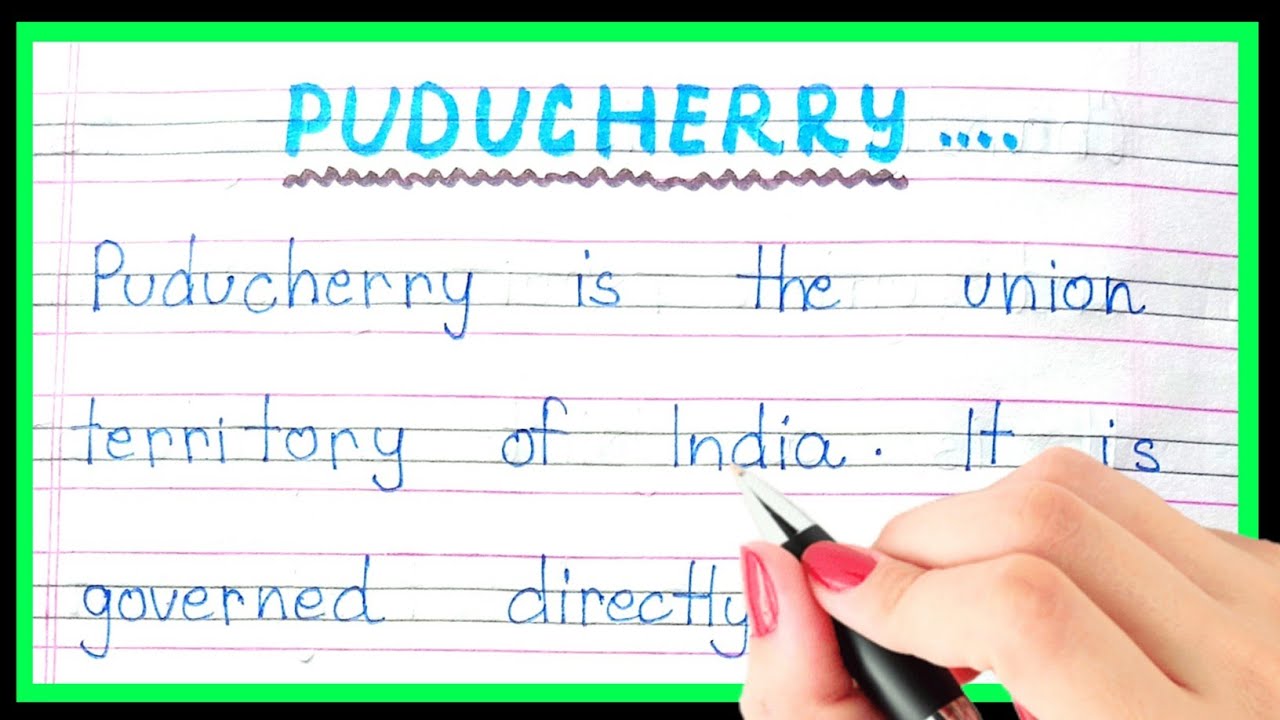 PUDUCHERRY ....
Puducherry is the union
territory of India. It is
governed directly